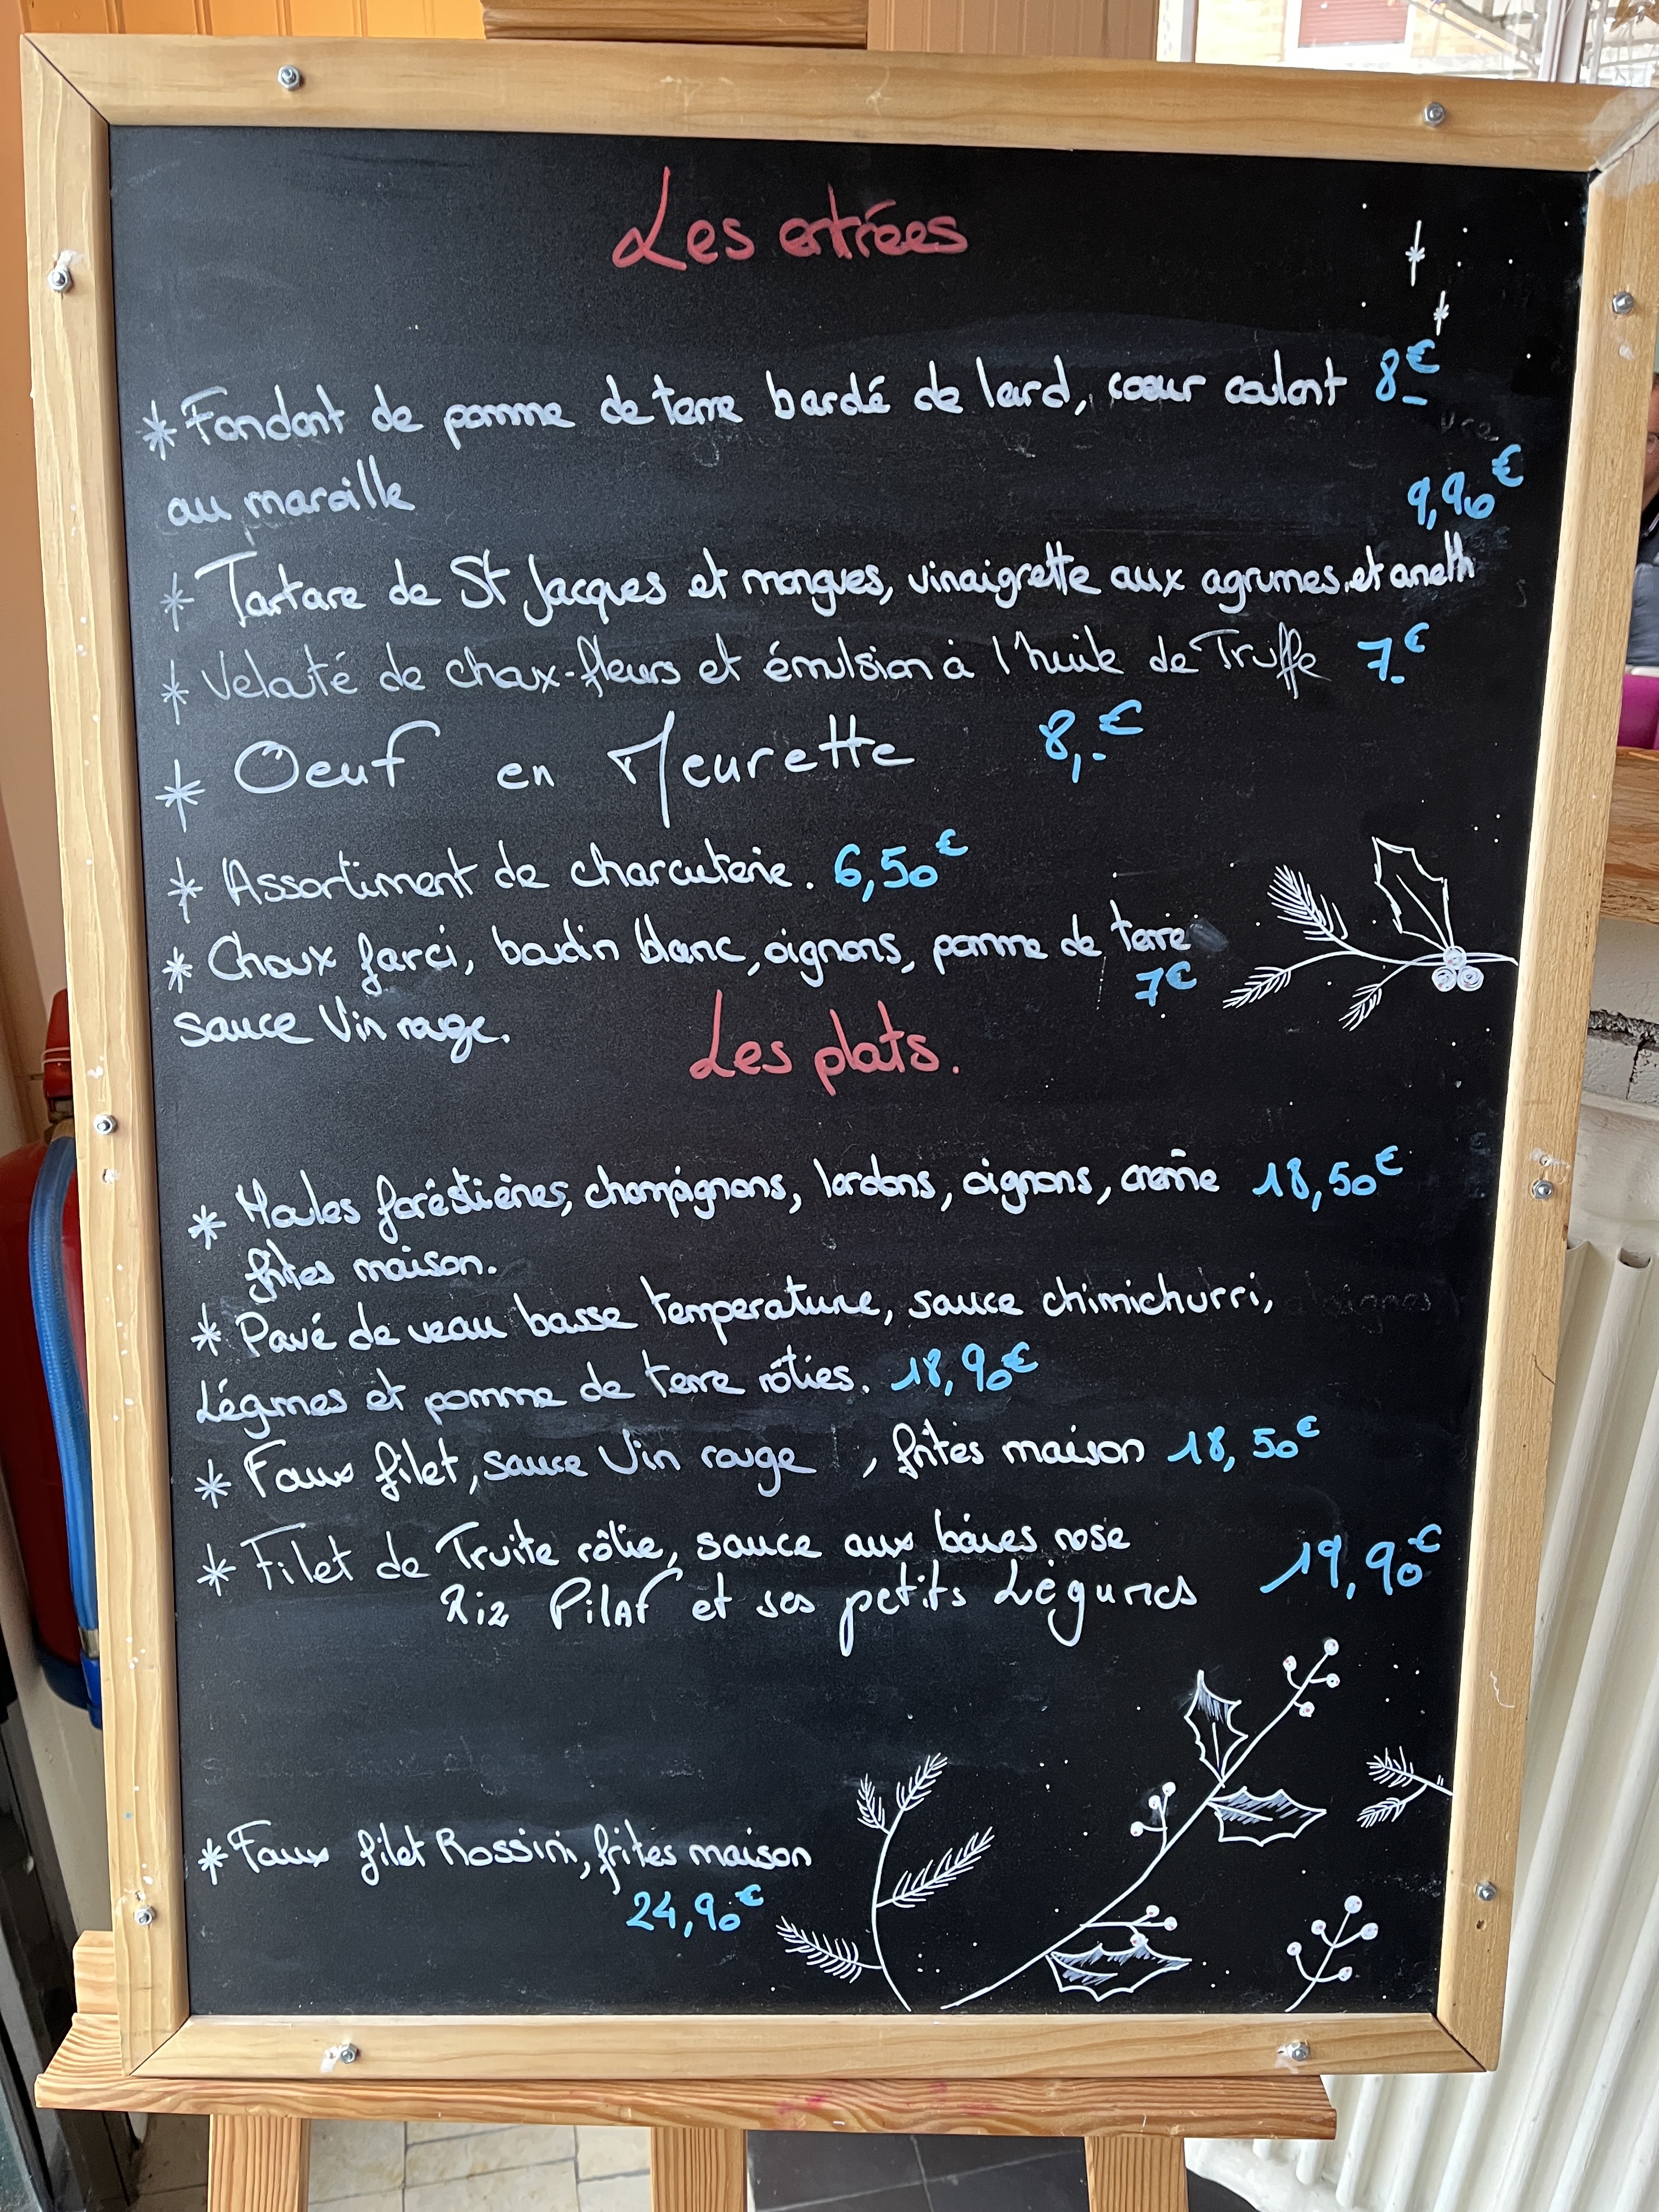 Les entrées
* Fondant de pomme de terre bardé de lard, coeur coulant 8€
au maroille
9,90€
* Tartare de St Jacques et mangues, vinaigrette aux agrumes et aneth
* Velouté de choux-fleurs et émulsion à l'huile de Truffe 7€
* Oeuf en Meurette 8,-€
* Assortiment de charcuterie. 6,50€
* Choux farci, boudin blanc, oignons, pomme de terre
7€
sauce Vin rouge.
Les plats.
* Moules foréstières, champignons, lardons, oignons, crème 18,50€
frites maison.
* Pavé de veau basse temperature, sauce chimichurri,
Légumes et pomme de terre rôties. 18,90€
* Faux filet, sauce Vin rouge , frites maison 18,50€
* Filet de Truite rôtie, sauce aux baies rose
19,90€
Riz Pilaf et ses petits Légumes
* Faux filet Rossini, frites maison
24,90€